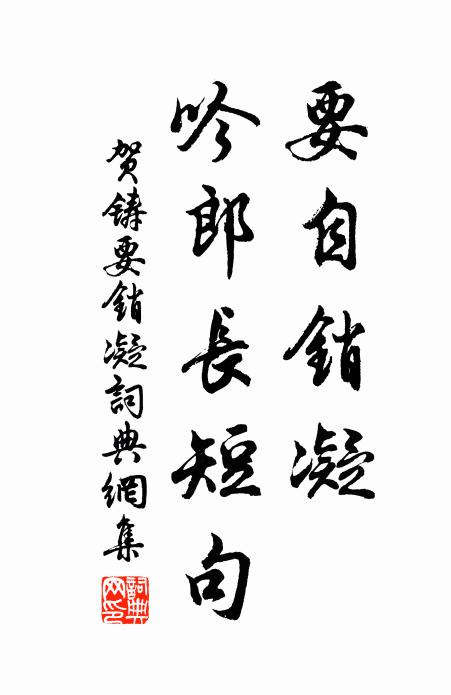 要自銷凝
吟郎長短句
賀鑄要銷凝詞典網集
詞典網印